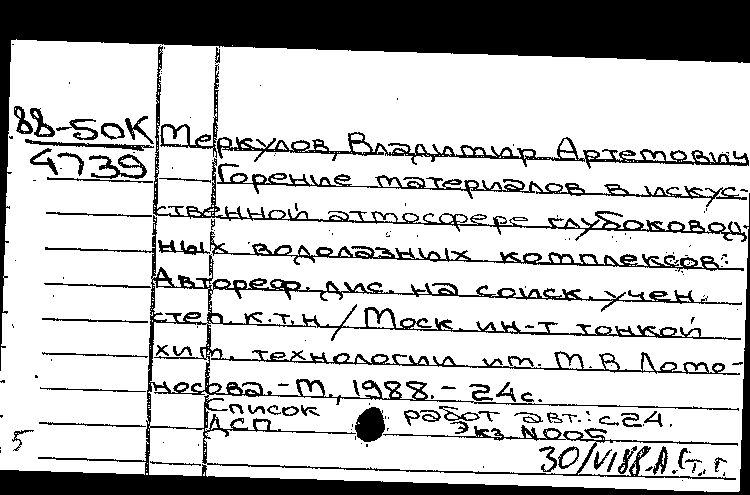 88-50К Меркулов, Владимир Артемович
4739 Горение материалов в искус-
ственной атмосфере глубоковод-
ных водолазных комплексов:
Автореф. дис. на соиск. учен.
степ. к.т.н. / Моск. ин-т тонкой
хим. технологии им. М.В. Ломо-
носова. - М., 1988. - 24с.
Список работ авт.: с.24.
ДСП. Экз. N005
30/VI88.
5